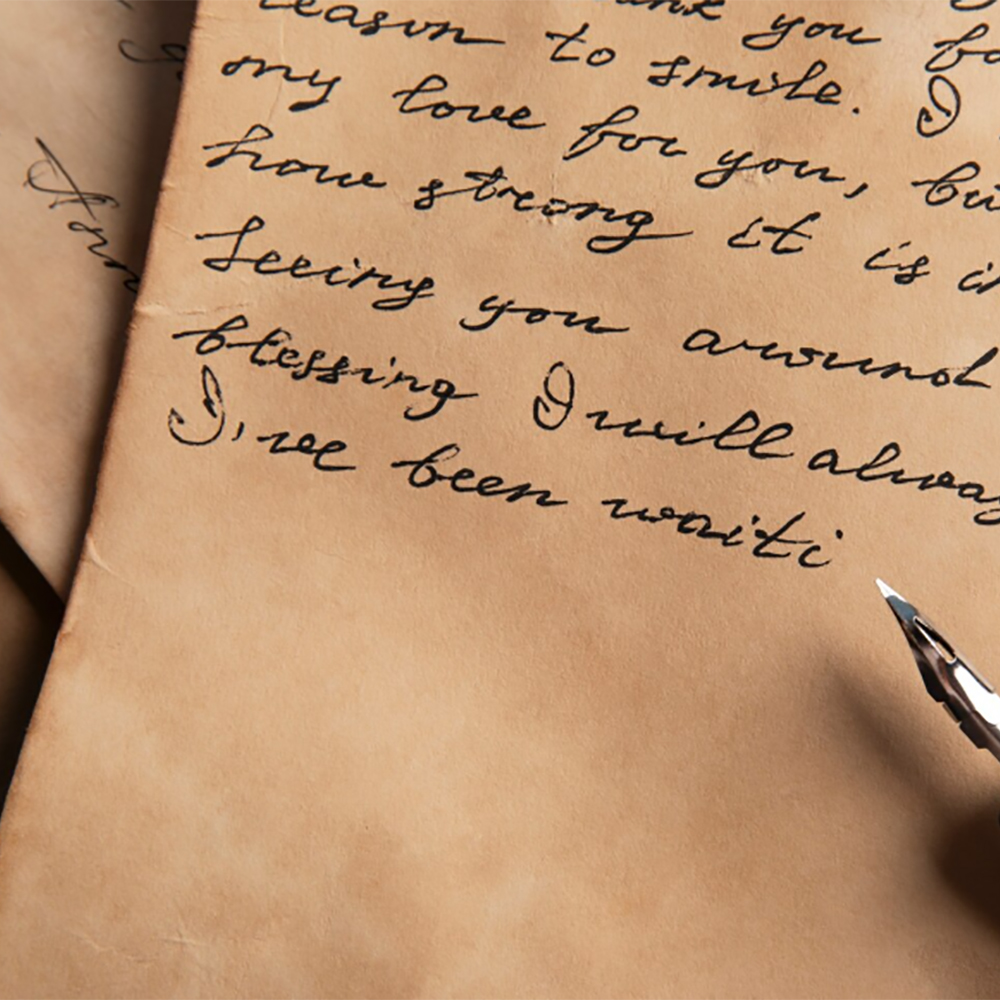 you
reason to smile. I
my love for you,
how strong it is
Seeing you around
blessing I will
I've been waiti